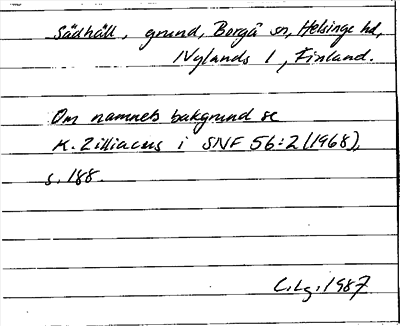 Sädhäll, grund, Borgå sn, Helsinge hd,
Nylands l, Finland.
Om namnets bakgrund se
K. Zilliacus i SNF 56:2 (1968),
s. 188.
C.Lg. 1987